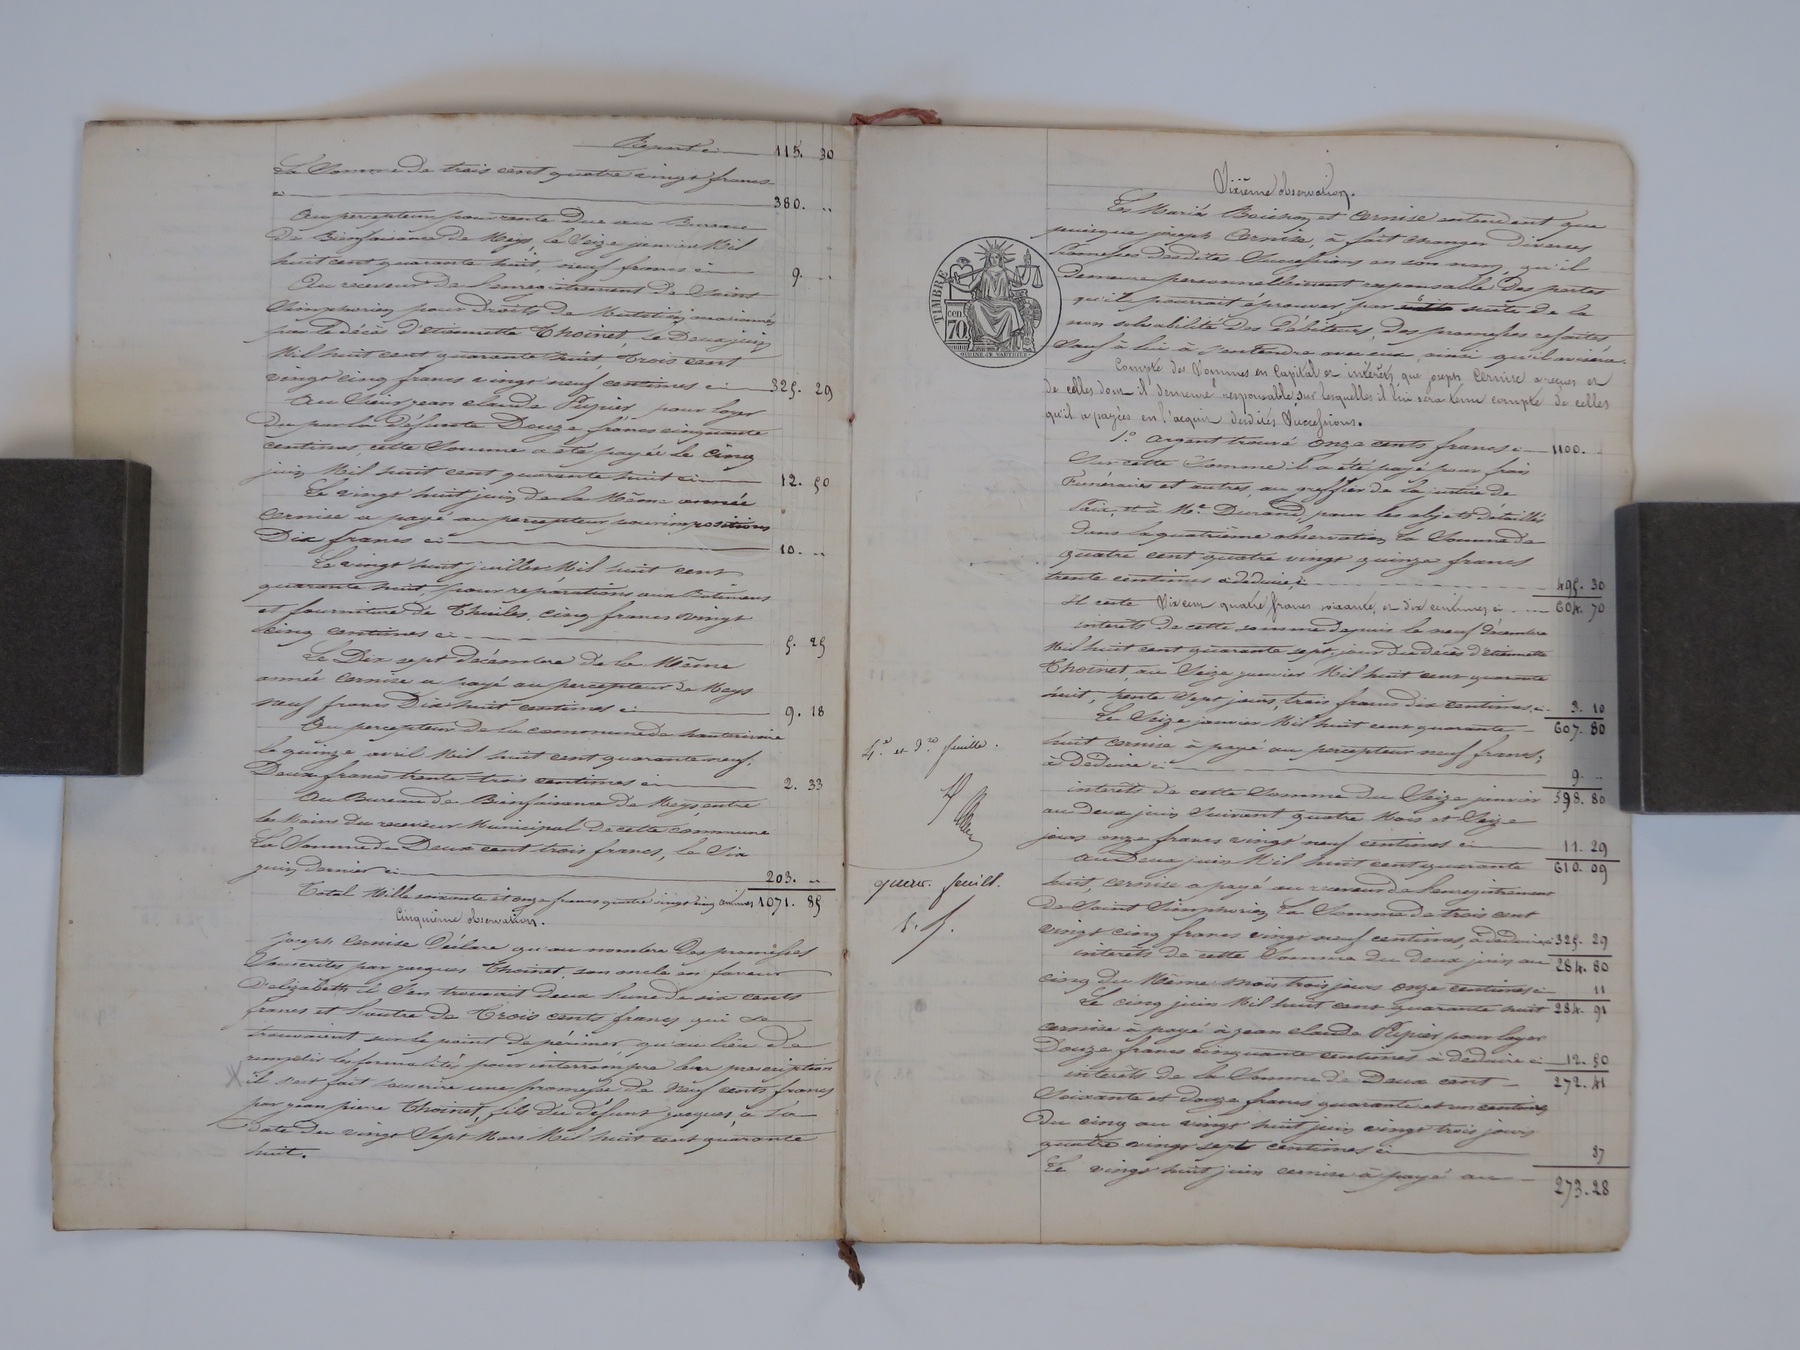 Report ci 115. 30
La Somme de trois cent quatre vingt francs
ci 380. ..
Au percepteur pour rente due au Bureau
de Bienfaisance de Meys, le Seize janvier Mil
huit cent quarante huit, neuf francs ci 9. ..
Au receveur de l'enregistrement de Saint
Simphorien pour droits de Mutation
par le décès d'Etiennette Thoinet, le Deux juin
Mil huit cent quarante huit, trois cent
vingt cinq francs vingt neuf centimes ci 325. 29
Au Sieur jean claude Pupier, pour loyer
du par la défunte Douze francs cinquante
centimes, cette Somme a été payée le Cinq
juin Mil huit cent quarante huit ci 12. 50
Le vingt huit juin de la Même année
Cernise a payé au percepteur pour impositions
Dix francs ci 10. ..
Le vingt huit juillet Mil huit cent
quarante huit, pour réparations aux Bâtiments
et fourniture de Thuiles, cinq francs vingt
cinq centimes ci 5. 25
Le Dix sept décembre de la Même
année Cernise a payé au percepteur de Meys
neuf francs Dix huit centimes ci 9. 18
Au percepteur de la commune de hauterivoire
le quinze avril Mil huit cent quarante neuf,
Deux francs trente trois centimes ci 2. 33
Au Bureau de Bienfaisance de Meys, entre
les Mains du receveur Municipal de cette commune
La Somme de Deux cent trois francs, le Six
juin dernier ci 203. ..
Total Mille soixante et onze francs quatre vingt cinq centimes 1071. 85
Cinquième observation.
Joseph Cernise déclare qu'au nombre des promesses
souscrites par jacques Thoinet, son oncle en faveur
d'elizabeth il s'en trouvait deux l'une de six cents
francs et l'autre de Trois cents francs qui se
trouvaient sur le point de périmer, qu'au lieu de
remplir les formalités pour interrompre leur prescription
il s'est fait souscrire une promesse de Neuf cents francs
par jean pierre Thoinet, fils du défunt jacques, à la
Date du vingt Sept Mars Mil huit cent quarante
huit.
Sixième observation.
Les Mariés Boichon et Cernise entendent que
puisque joseph Cernise, à fait changer diverses
Promesses desdites Successions en son nom, qu'il
demeure personnellement responsable des pertes
qu'il pourrait éprouver, par suite de la
non solvabilité des Débiteurs, des promesses refaites
Sauf à lui à s'entendre avec eux, ainsi qu'il avisera.
Compte des Sommes en Capital et intérêts que joseph Cernise a reçues et
de celles dont il demeure responsable sur lesquelles il lui sera tenu compte de celles
qu'il a payées en l'acquit desdites Successions.
TIMBRE
cen
70
1.° argent trouvé Onze cents francs ci 1100.
Sur cette Somme il a été payé pour frais
funéraires et autres, au greffier de la justice de
Paix, et à Me. Durand, pour les objets détaillés
dans la quatrième observation la Somme de
quatre cent quatre vingt quinze francs
trente centimes à déduire, ci 495. 30
Il reste Six cent quatre francs soixante et dix centimes ci 604. 70
intérêts de cette somme depuis le neuf décembre
Mil huit cent quarante sept, jour du décès d'Etiennette
Thoinet, au Seize janvier Mil huit cent quarante
huit, trente Sept jours, trois francs dix centimes, ci 3. 10
Le Seize janvier Mil huit cent quarante 607. 80
huit Cernise à payé au percepteur neuf francs,
à déduire ci 9. ..
intérêts de cette Somme du Seize janvier 598. 80
au deux juin Suivant quatre Mois et Seize
jours onze francs vingt neuf centimes ci 11. 29
Au Deux juin Mil huit cent quarante 610. 09
huit, Cernise a payé au receveur de l'enregistrement
de Saint Simphorien La Somme de trois cent
vingt cinq francs vingt neuf centimes, à déduire ci 325. 29
intérêts de cette Somme du deux juin au 284. 80
cinq du Même mois trois jours onze centimes ci 11
Le cinq juin Mil huit cent quarante huit 284. 91
Cernise à payé à jean claude Pupier pour loyer
Douze francs cinquante centimes à déduire ci 12. 50
intérêts de la Somme de Deux cent 272. 41
Soixante et douze francs quarante et un centimes,
Du cinq au vingt huit juin vingt trois jours
quatre vingt sept centimes ci 87
Le vingt huit juin Cernise à payé au 273. 28
4.e et 3.me feuille.
feuill.